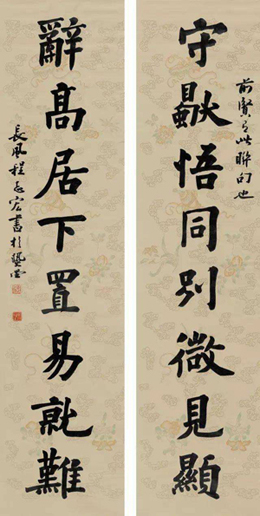 守默悟同别微見顯
前賢有此聯句也
辭高居下置易就難
長風程玉宏書於龔